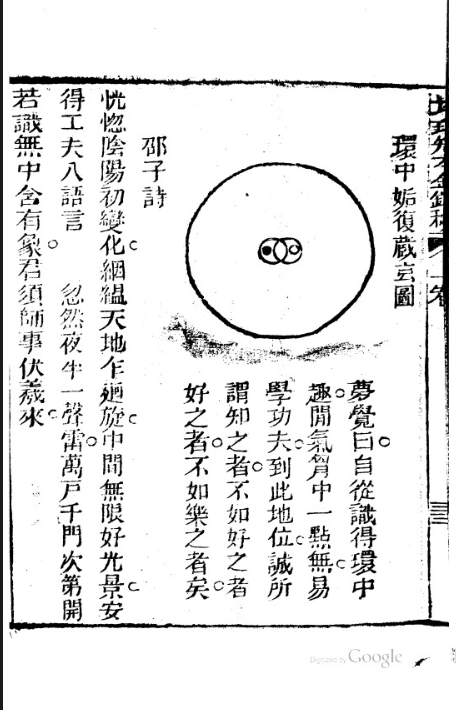 環中姤復蔵玄圖
夢覺曰自從識得環中
趣閒氣胷中一點無易
學功夫到此地位誠所
謂知之者不如好之者
好之者不如樂之者矣
邵子詩
恍惚陰陽初變化絪縕天地乍廻旋中間無限好光景安
得工夫入語言 忽然夜半一聲雷萬戸千門次第開
若識無中含有象君須師事伏羲來
Digitized by Google